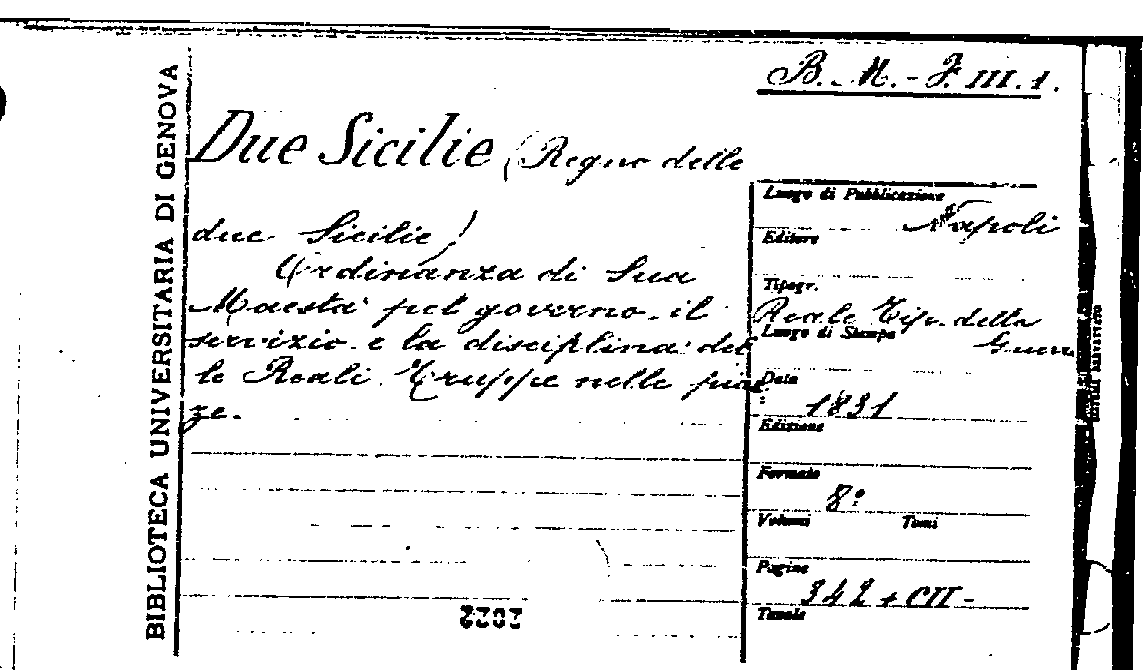 B. M. - F. III. 1.
BIBLIOTECA UNIVERSITARIA DI GENOVA
Due Sicilie (Regno delle
due Sicilie)
Ordinanza di Sua
Maestà pel governo il
servizio e la disciplina del
le Reali Truppe nelle piaz
ze.
Luogo di Pubblicazione
Napoli
Editore
Tipogr.
Reale Tip. della
Guerra
Luogo di Stampa
Data
1831
Edizione
Formato
8°
Volumi Tomi
Pagine
342 + CII -
Tavole